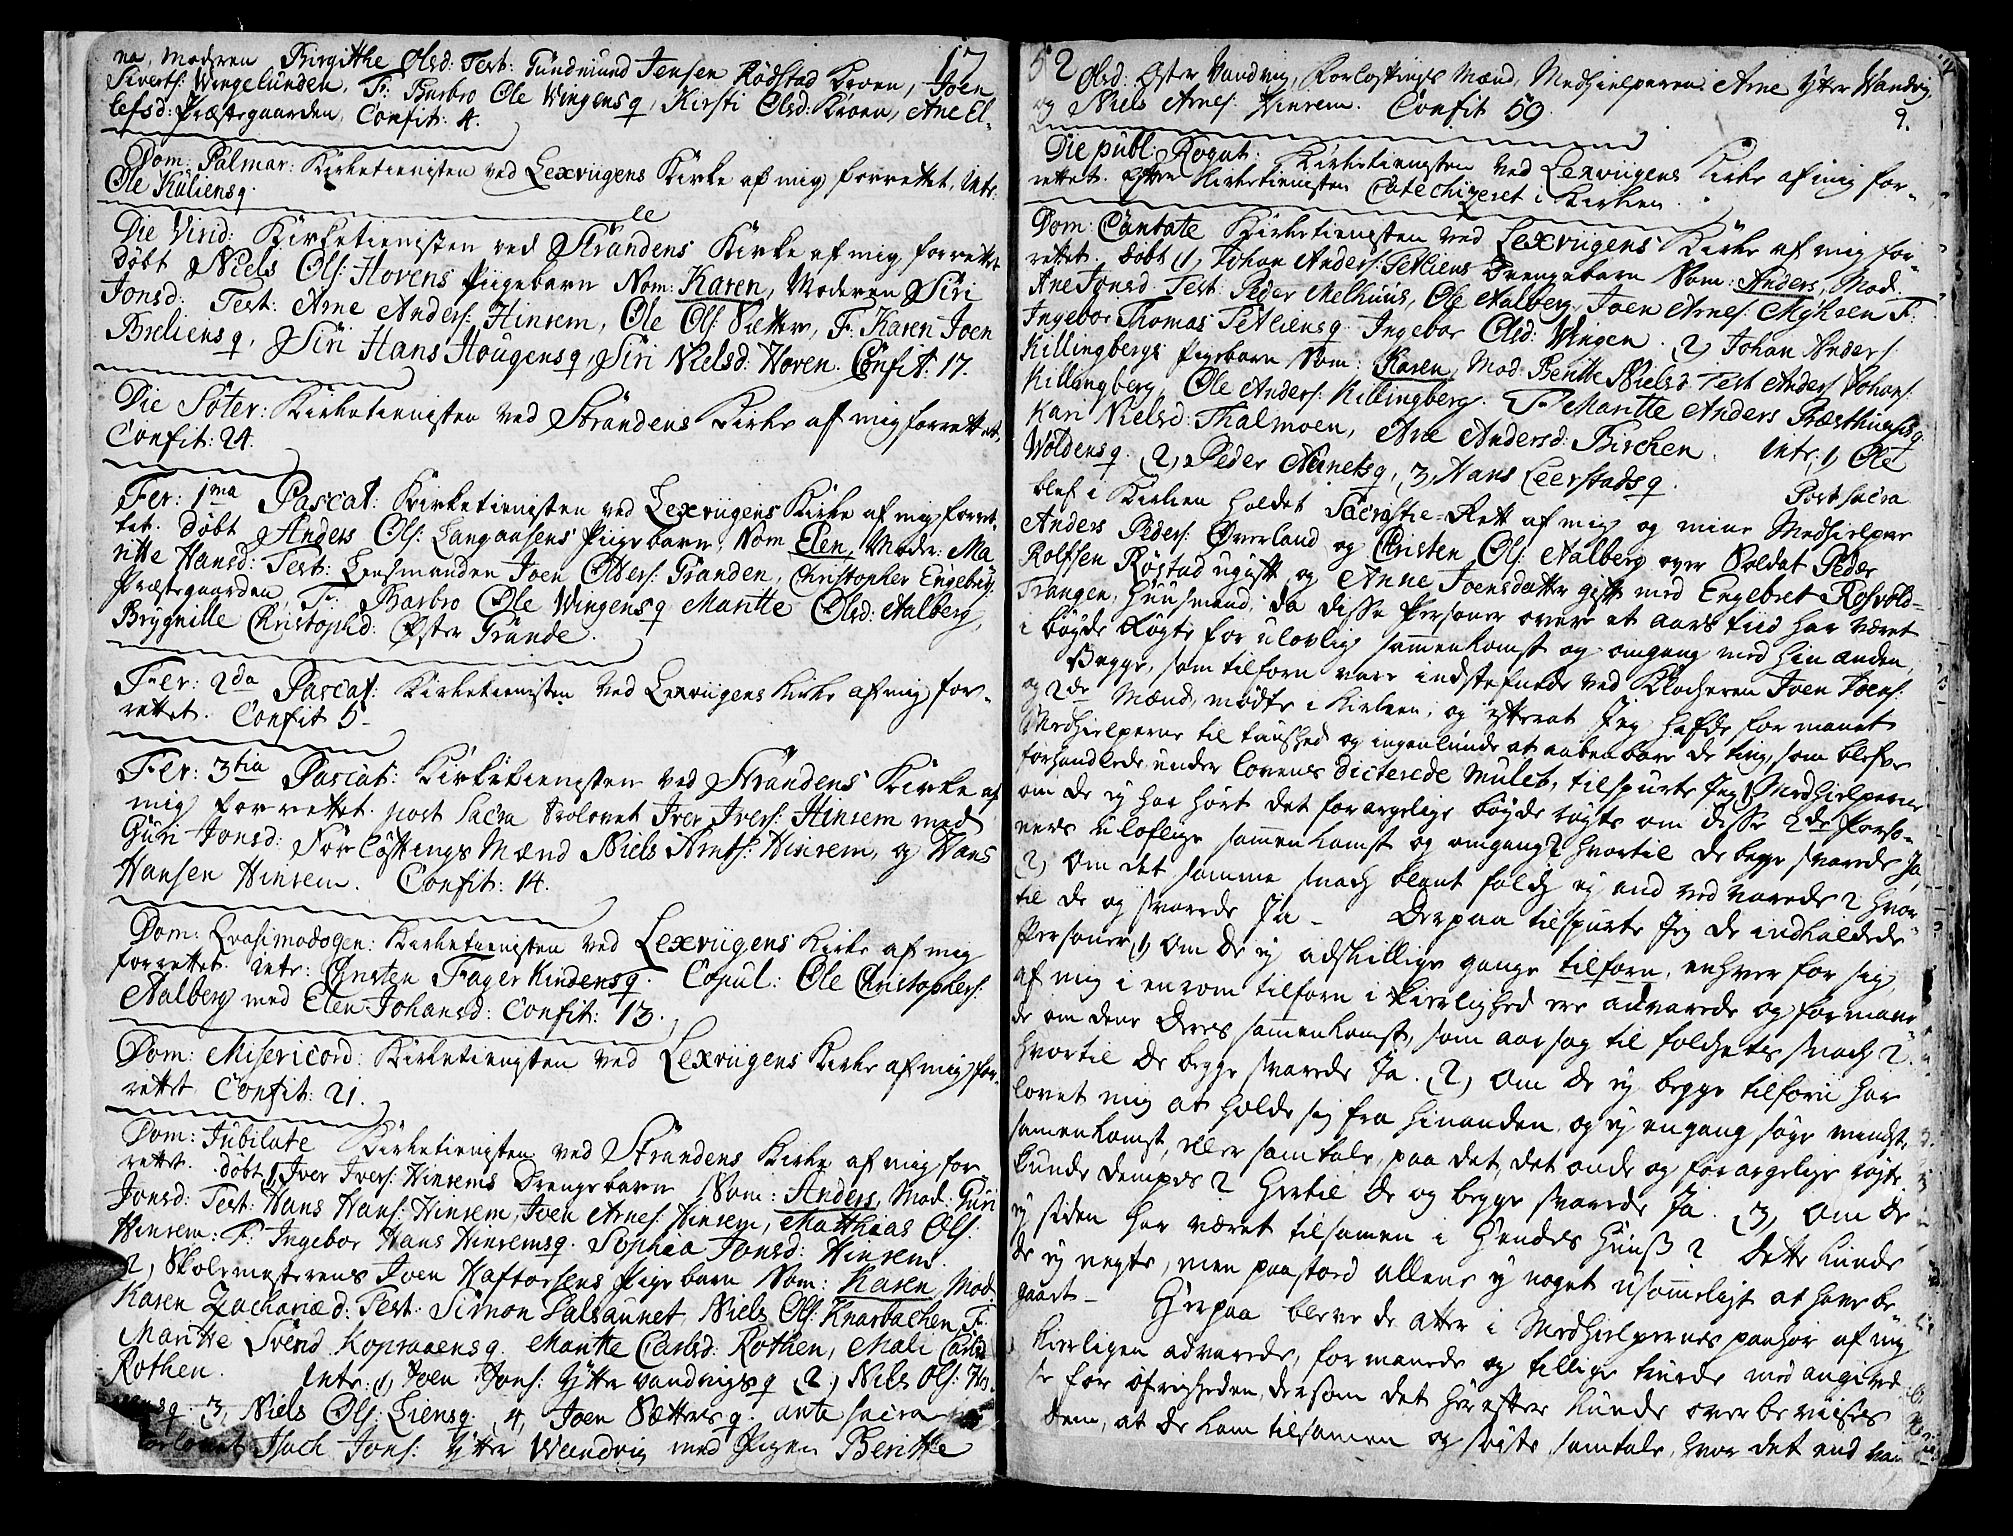 17
na, Moderen Birgitthe Olsd: Test: Gundmund Jensen Rødstad Kroen, Joen
Sivertsː Wingelunden, F: Barbro Ole Wingensq, Kirsti Olsd: Kroen, Ane El-
lefsd: Præstegaarden, Confit: 4.
Dom: Palmar: Kirketienisten ved Lexvugens Kirke af mig forrettet, Intr:
Ole Kuliensq.
Die Virid: Kirketienisten ved Strandens Kirke af mig forrettet
døbt Niels Ols: Hovens Piigebarn Nom: Karen, Moderen Siri
Jonsd: Test: Arne Anders: Hinrem, Ole Ols: Sætter, F: Karen Joen
Breliensq, Siri Hans Hougensq, Siri Nielsd: Hoven. Confit: 17.
Die Soter: Kirketienisten ved Strandens Kirke af mig forrettet,
Confit: 24.
Fer: 1ma Pascat: Kirketienisten ved Lexvugens Kirke af mig forret-
tet. døbt Anders Ols: Langaasens Piigebarn, Nom Elen, Moder: Ma
ritte Hansd: Test: Lensmanden Joen Olders: Granden, Christopher Engebrigː
Præstegaarden, F: Barbro Ole Wingensq Maritte Olsd: Aalberg,
Brygnille Christophd: Øster Grande.
Fer: 2da Pascat: Kirketienisten ved Lexvugens Kirke af mig for-
rettet. Confit 5-
Fer: 3tia Pascat: Kirketienisten ved Strandens Kirke af
mig forrettet. post sacra trolovet Iver Ivers: Hinrem med
Guri Jonsd: Forløftings Mænd Niels Arnts: Hinrem, og Hans
Hansen Hinrem. Confit: 14.
Dom: Qvasimodogen: Kirketienisten ved Lexvugens Kirke af mig
forrettet. intr: Christen Fagerkindensq. Copul: Ole Christophers:
Aalberg med Elen Johansd: Confit: 13.
Dom: Misericord: Kirketienisten ved Lexvugens Kirke af mig for-
rettet Confit: 21.
Dom: Jubilate Kirketienisten ved Strandens Kirke af mig for-
rettet. døbt 1, Iver Ivers: Hinrems Drengebarn Nom: Anders, Mod: Guri
Jonsd: Test: Hans Hans: Hinrem, Joen Arnes: Hinrem, Matthias Ols:
Hinrem: F: Ingebor Hans Hinremsq. Sophia Jonsd: Hinrem.
2, Skolemesterens Joen Haftorsens Pigebarn Nom: Karen, Mod:
Karen Zachariæd: Test: Simon Salsaunet, Niels Ols: Knarbacken F:
Maritte Svend Kopraaensq. Maritte Carlsd: Rothen, Mali Carlsd
Rothen. Intr: 1, Joen Jons: Ytter Vandvigsq 2, Niels Ols:
3, Niels Ols: Liensq. 4, Joen Sættersq. ante sacra
Isach Jons: Ytter Wandvig med Pigen Beritthe
52
9.
Olsd: Øster Vandvig, Forløftings Mænd, Medhielperen Arne Ytter Wandvig
og Niels Arnes: Hinrem. Confit 59.
Die publ: Rogat: Kirketienisten ved Lexvugens Kirke af mig for-
rettet. Efter Kirketienisten Catechizeret i Kirken.
Dom: Cantate Kirketienisten ved Lexvugens Kirke af mig for-
rettet. døbt 1, Johan Anders: Sætliens Drengebarn Nom: Anders, Mod.
Ane Jonsd: Test: Peder Melhuus, Ole Aalberg, Joen Arnes: Myhren F:
Ingebor Thomas Setliensq. Ingebor Olsd: Wingen. 2, Johan Anders:
Killingbergs Pigebarn Nom: Karen, Mod: Beritte Nielsd: Test Anders Johans:
Killingberg, Ole Anders: Killingberg. F: Maritte Anders Præsthusesq.
Kari Nielsd: Thalmoen, Ane Andersd: Birchen. Intr: 1, Ole
Woldensq. 2, Peder Neinetsq, 3, Hans Leerstadsq. Post sacra
blef i Kirken holdet Sacrastie-Rett af mig og mine Medhielpere
Anders Peders: Øverland og Christen Ols: Aalberg over Soldat Peder
Rolfsen Røstad ugift, og Anne Joensdatter gift med Engebret Rosvold-
Trangen, Huusmand, da disse Personer over et aars tiid har været
i bøyde Røgte for ulovlig sammenkomst og omgang med hinanden,
Begge, som tilforn vare indstefnede ved Klocheren Joen Joens:
og 2de Mænd, mødte i Kirken, og efterat Jeg hafde formanet
Medhielperne til taushed og ingenlunde at aabenbare de ting, som blefve
forhandlede under Lovens dicterede Mulct, tilspurte Jeg 1, Medhielperne
om de ey har hørt det forargelige bøyde røgte om disse 2de Perso-
ners ulovlige sammenkomst og omgang? hvortil de begge svarede Ja,
2, Om det samme snach blant folch ey end ved varede? hvor-
til de og svarede Ja - Derpaa tilspurte Jeg de indkaldede
Personer, 1, Om de ey adskillige gange tilforn, enhver for sig,
af mig i enrom tilforn i Kierlighed ere advarede og formane-
de om dene Deres sammenkomst, som aarsag til folchets snach?
hvortil de begge svarede Ja. 2, Om de ey begge tilforn har
lovet mig at holde sig fra hinanden, og ey engang søge mindste
samenkomst, eller samtale, paa det, det onde og forargelige røgte
kunde dempes? Hertil de og begge svarede Ja. 3, Om de
ey siden har været tilsamen i hendes Huus? Dette kunde
de ey negte, men paastod allene ey noget usømmeligt at have be-
gaaet - Herpaa bleve de atter i Medhielpernes paahør af mig
Kierligen advarede, formanede og tillige truede med angivel-
se for øfrigheden, dersom det herefter kunde overbeviises
dem, at de kom tilsamen og søgte samtale, hvor det end var